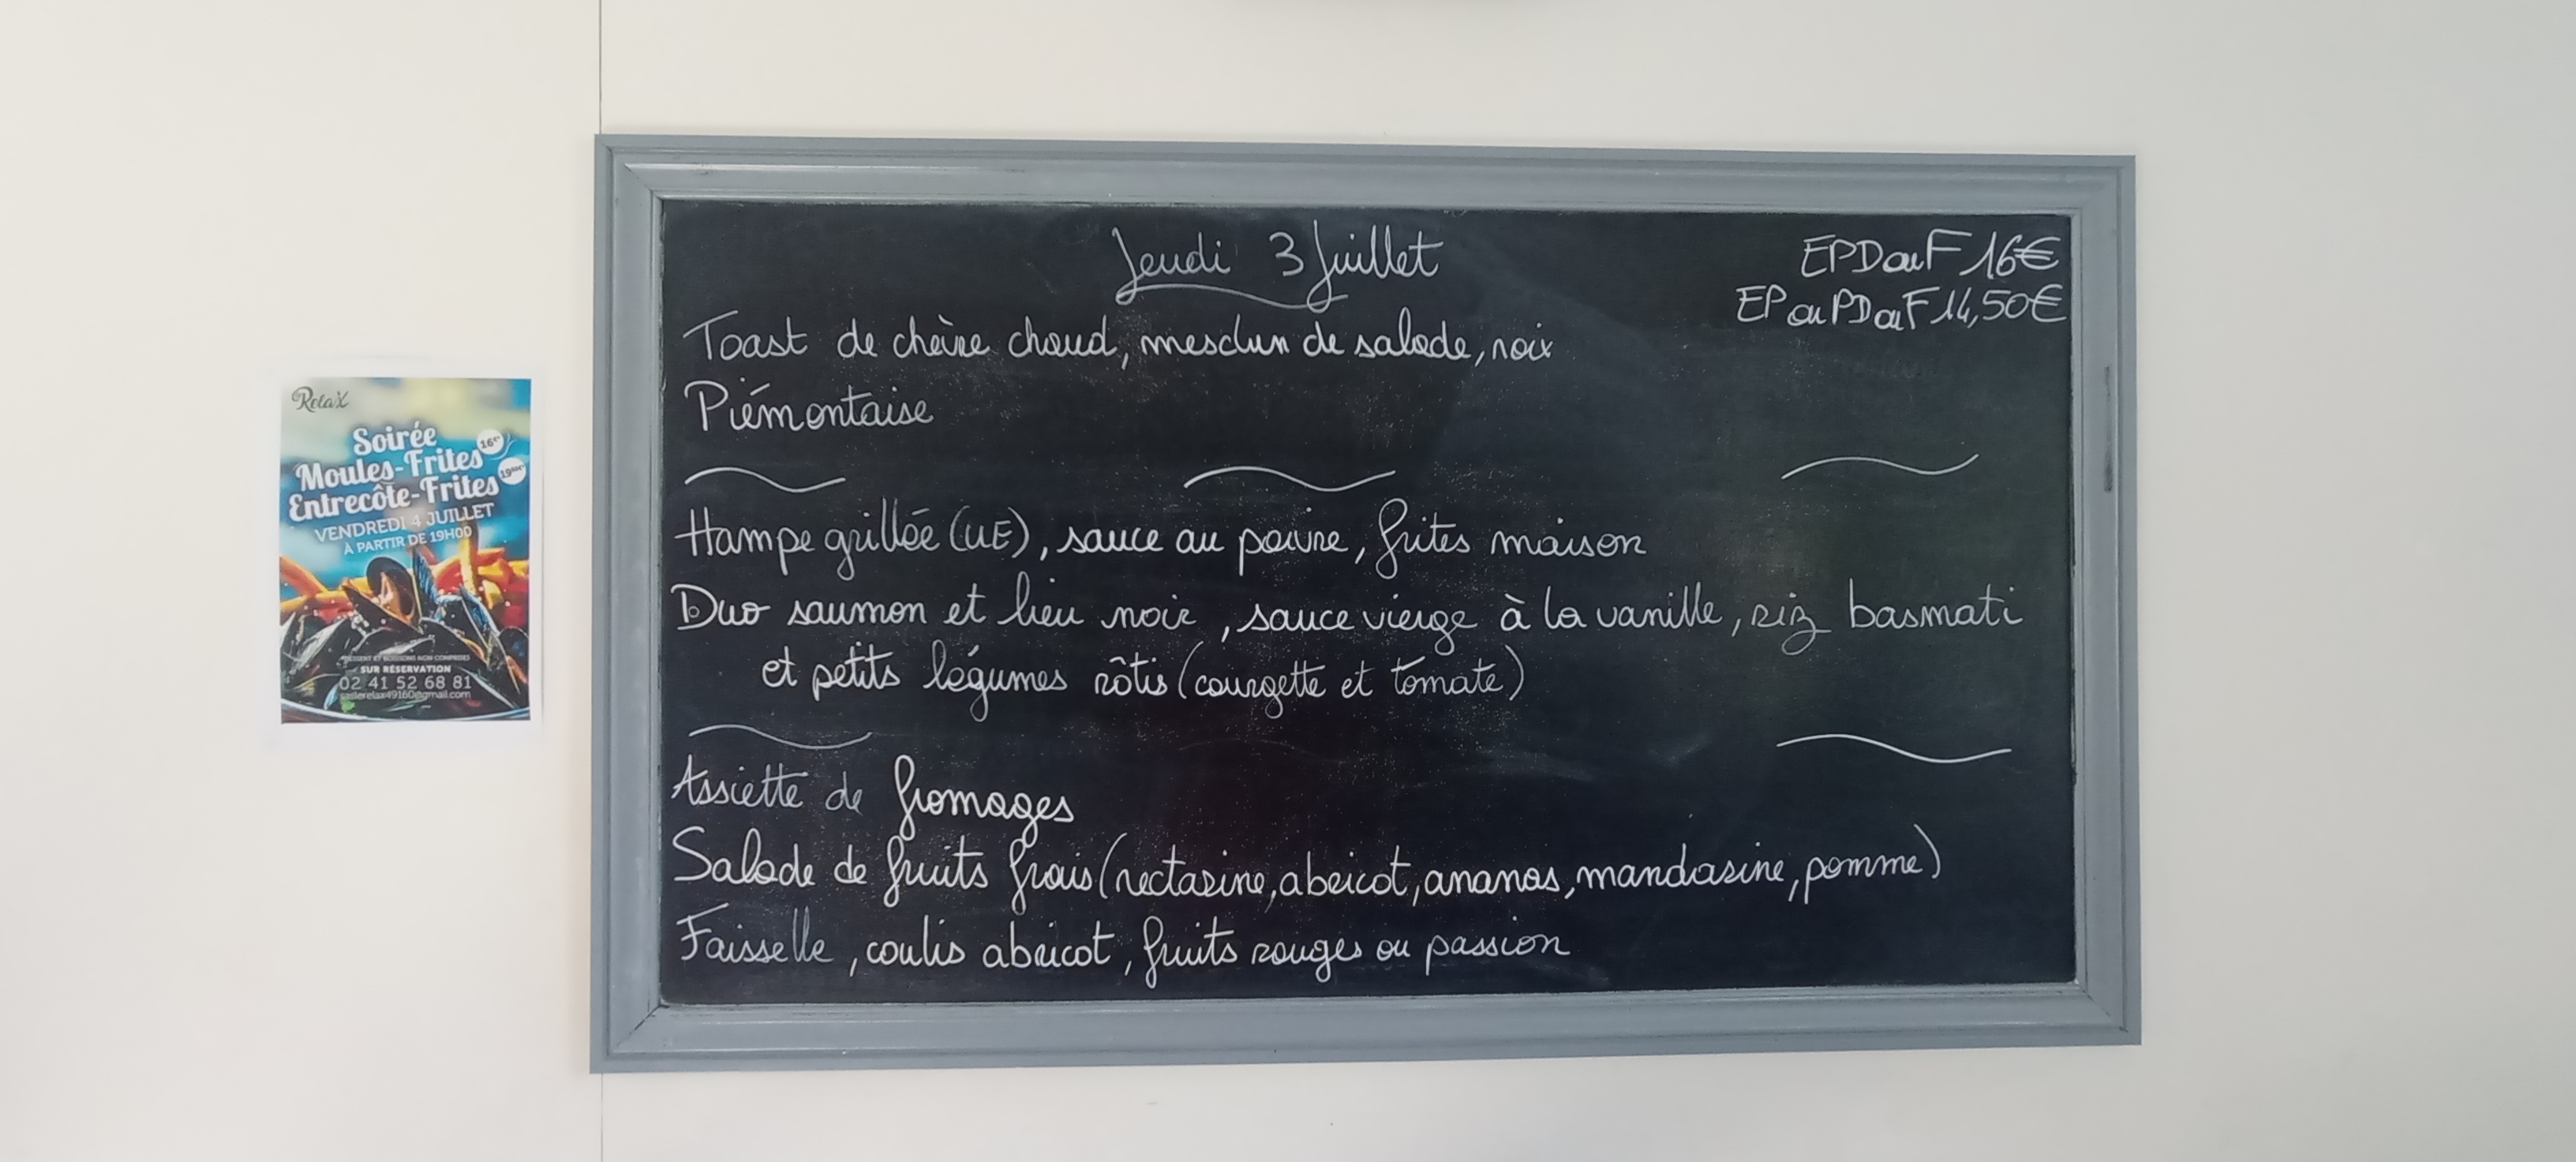 Jeudi 3 Juillet
EPDouF 16€
EP ou PDouF 14,50€
Toast de chèvre chaud, mesclun de salade, noix
Piémontaise
Hampe grillée (UE), sauce au poivre, frites maison
Duo saumon et lieu noir, sauce vierge à la vanille, riz basmati
et petits légumes rôtis (courgette et tomate)
Assiette de fromages
Salade de fruits frais (nectarine, abricot, ananas, mandarine, pomme)
Faisselle, coulis abricot, fruits rouges ou passion
RelaX
Soirée
Moules-Frites
Entrecôte-Frites
VENDREDI 4 JUILLET
À PARTIR DE 19H00
DESSERT ET BOISSONS NON COMPRISES
SUR RÉSERVATION
02 41 52 68 81